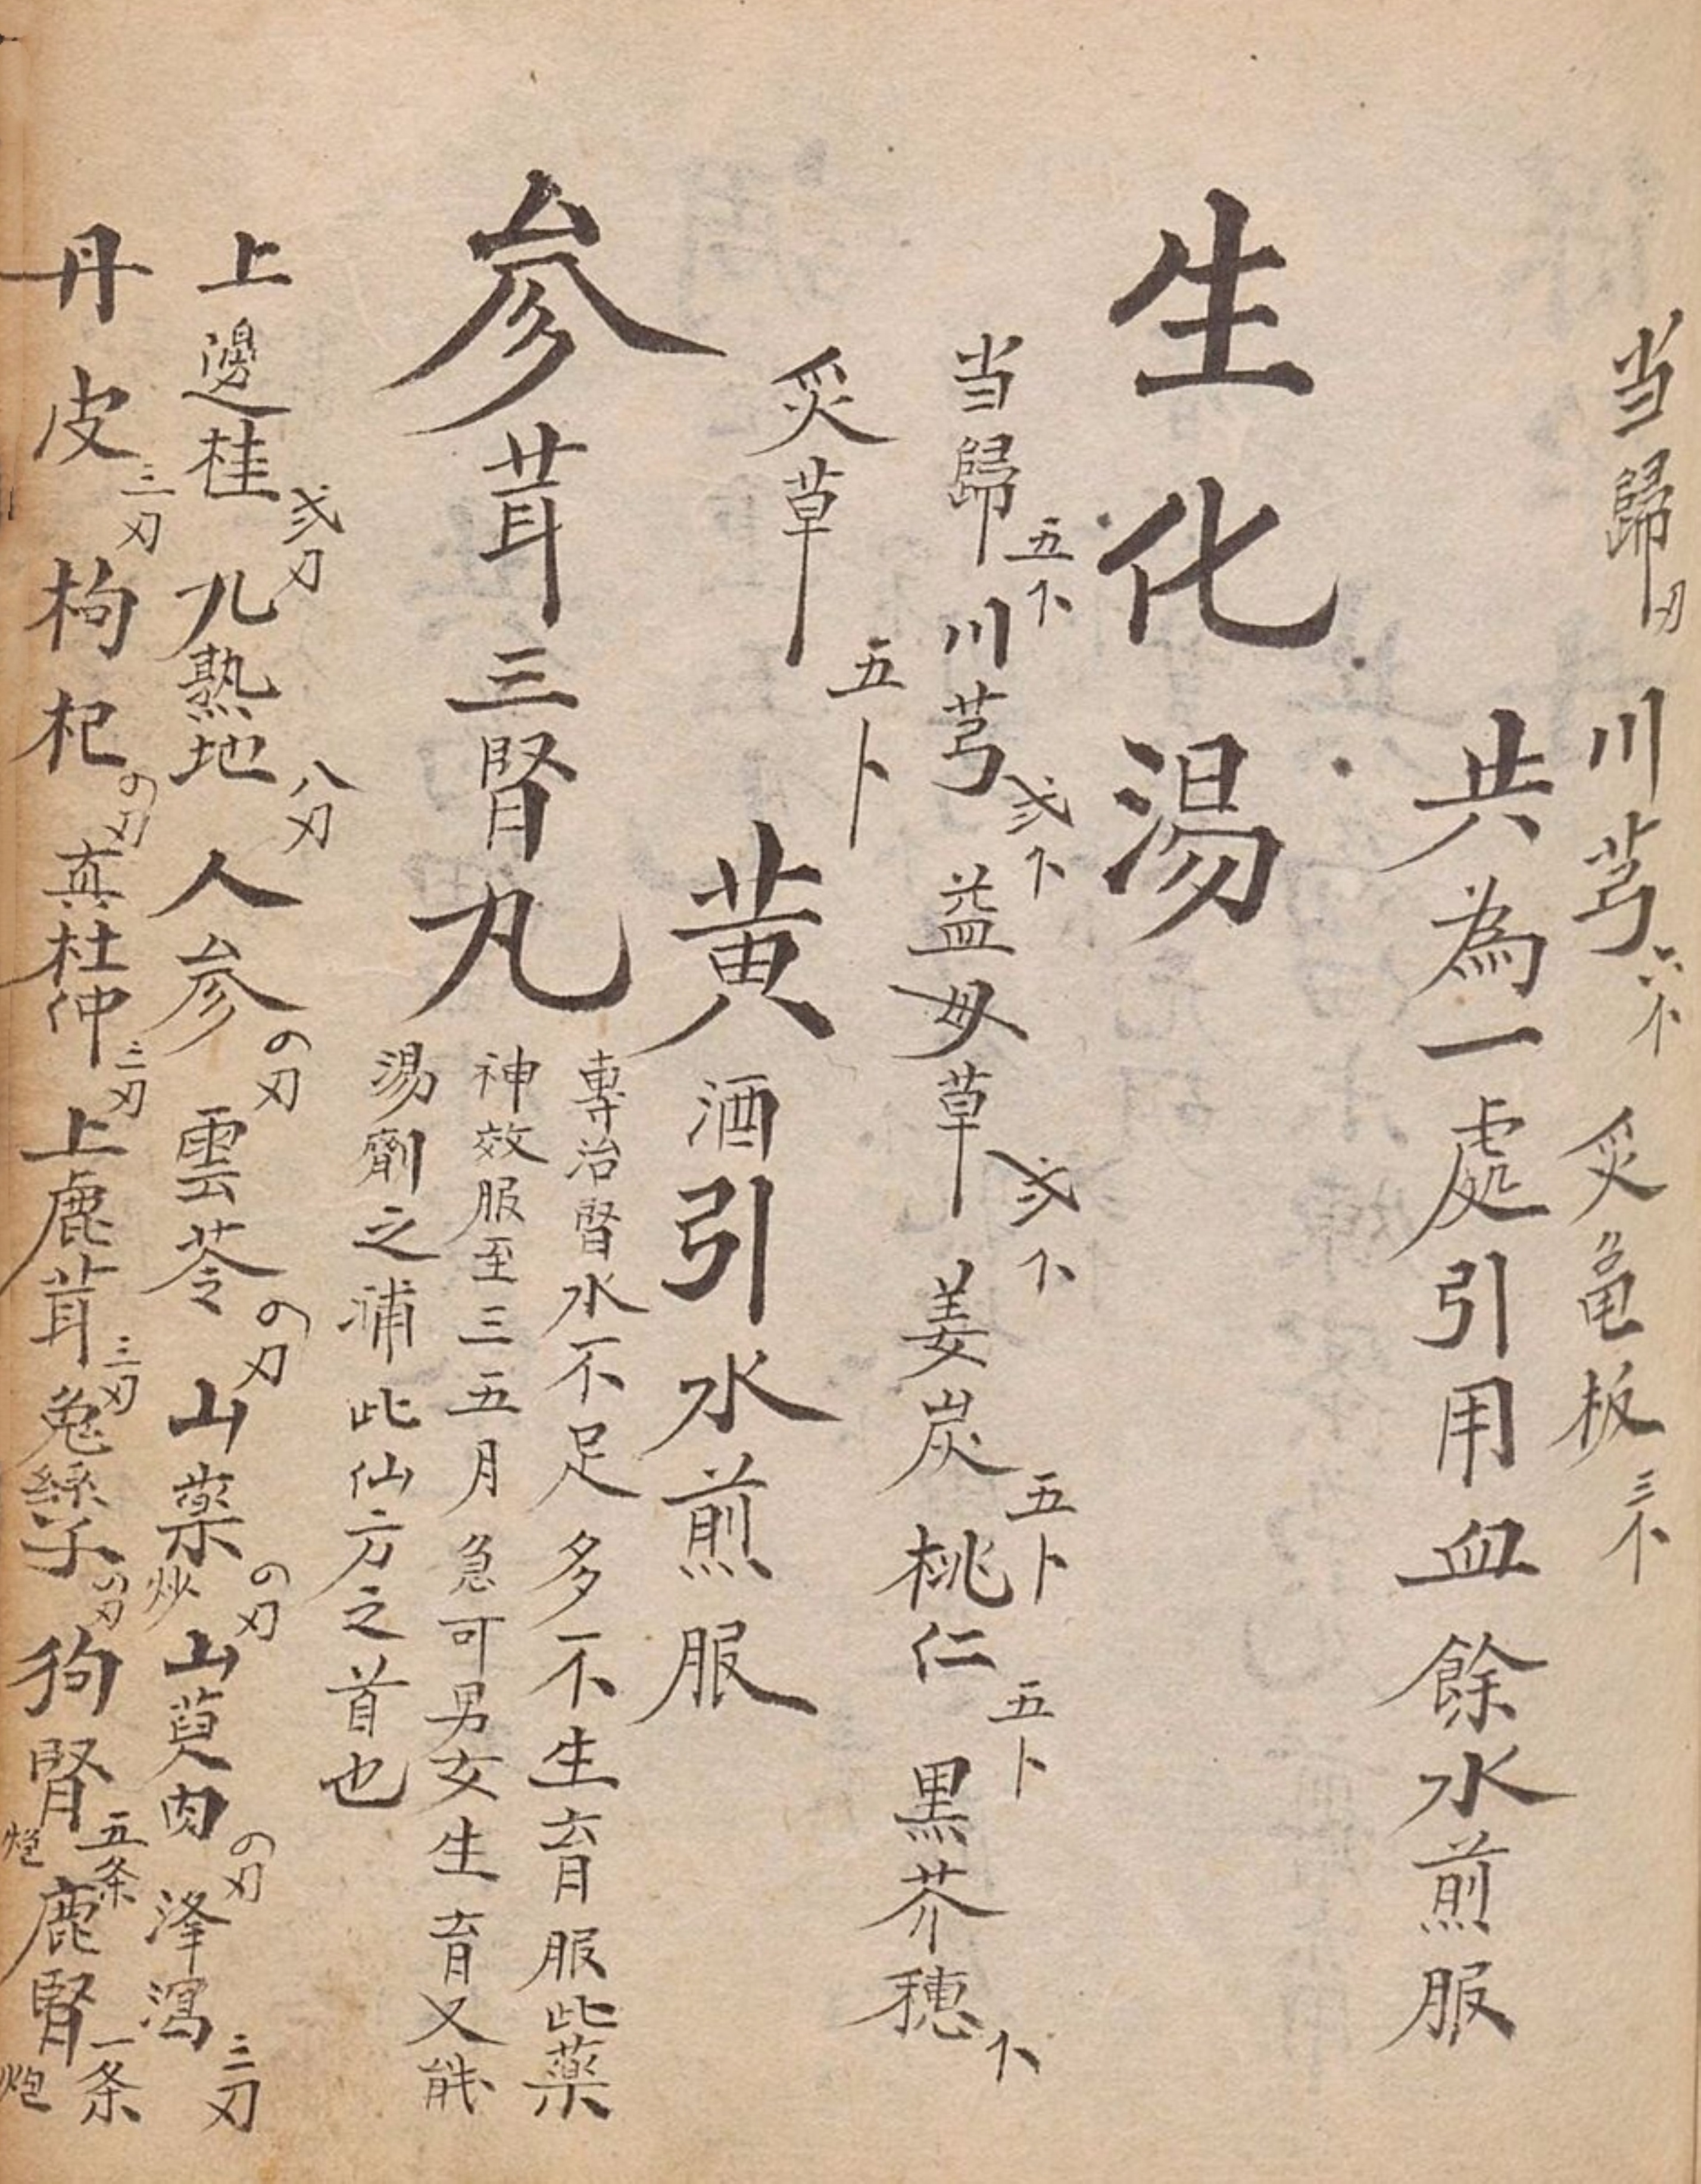 当歸刃 川芎六个 炙龟板三个
共為一處引用血餘水煎服
生化湯
当歸五下 川芎弍下 益母草弍下 姜炭五卜 桃仁五卜 黒芥穂下
炙草五卜
黄酒引水煎服
参茸三腎丸
專治腎水不足多不生育服此薬
神效服至三五月急可男女生育又能
湯劑之浦此仙方之首也
上邊桂弍刃 九熟地八刃 人参の刃 雲苓の刃 山薬炒の刃 山萸肉の刃 泽瀉三刃
丹皮三刃 枸杞の刃 真杜仲三刃 上鹿茸三刃 兔絲子の刃 狗腎五条炮 鹿腎一条炮